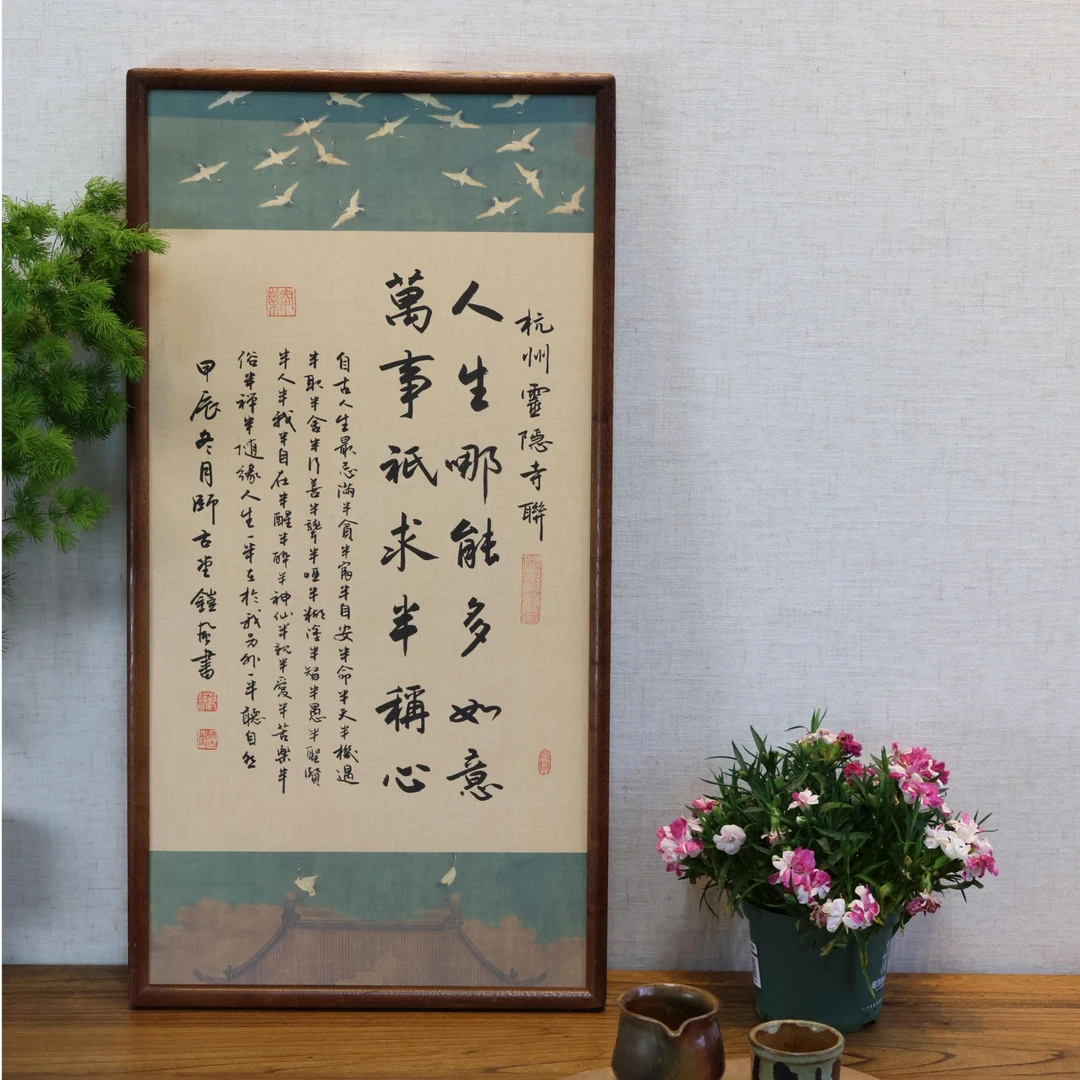 杭州靈隱寺聯
人生哪能多如意
萬事祇求半稱心
自古人生最忌滿半貪半富半自安半命半天半機遇
半取半舍半行善半聾半啞半糊塗半智半愚半聖賢
半人半我半自在半醒半醉半神仙半親半愛半苦樂半
俗半禪半隨緣人生一半在於我另外一半聽自然
甲辰冬月師古堂鎧風書